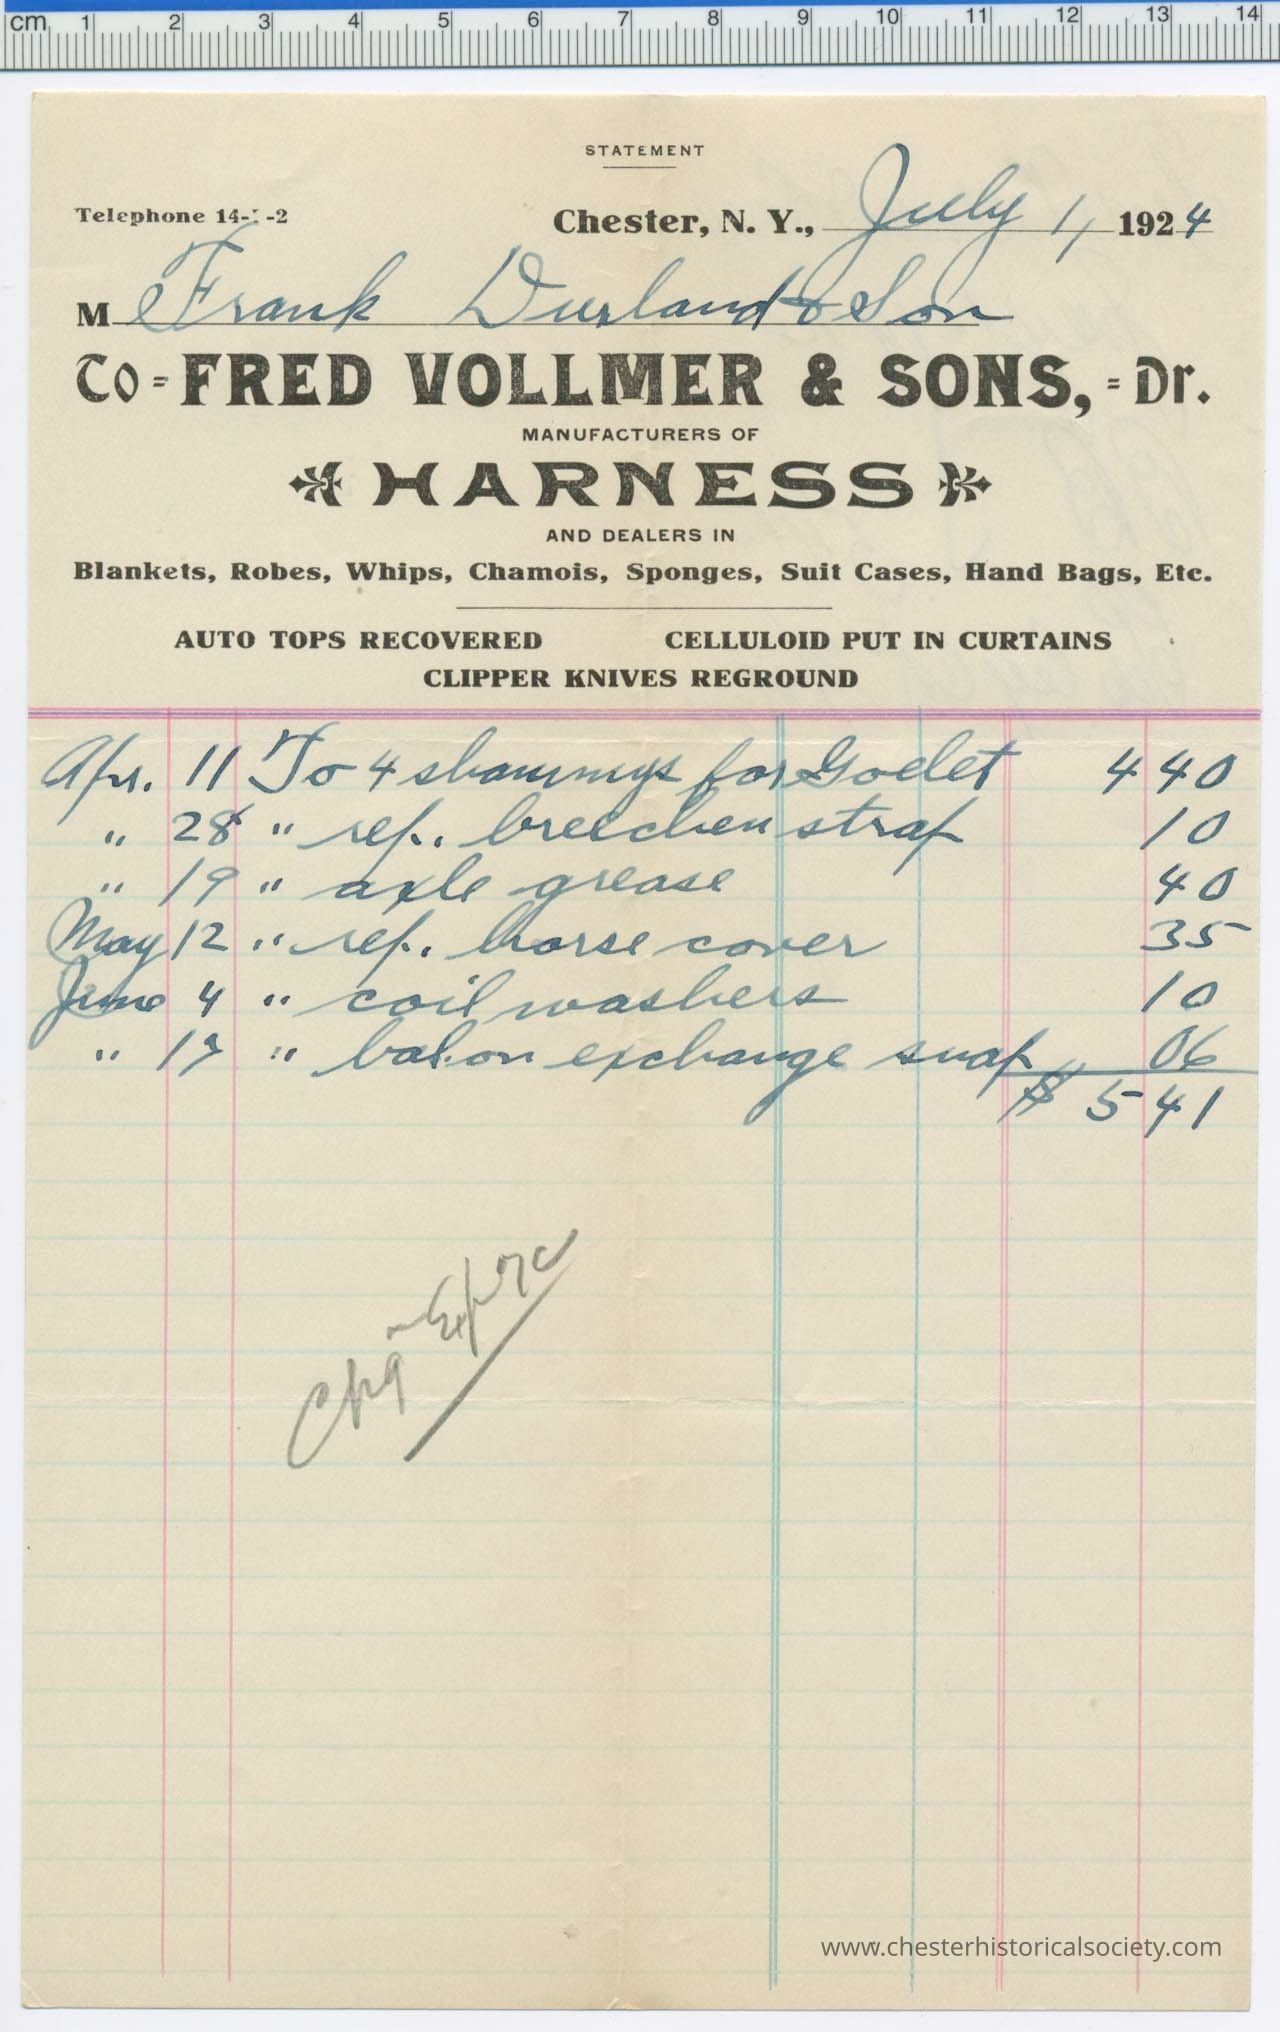 cm 1 2 3 4 5 6 7 8 9 10 11 12 13 14
STATEMENT
Telephone 14- -2
Chester, N. Y., July 1, 1924
M Frank Durland & Son
To = FRED VOLLMER & SONS, = Dr.
MANUFACTURERS OF
HARNESS
AND DEALERS IN
Blankets, Robes, Whips, Chamois, Sponges, Suit Cases, Hand Bags, Etc.
AUTO TOPS RECOVERED CELLULOID PUT IN CURTAINS
CLIPPER KNIVES REGROUND
Apr. 11 To 4 shammys for Goelet 4 40
" 28 " rep. breechen strap 10
" 19 " axle grease 40
May 12 " rep. horse cover 35
June 4 " coil washers 10
" 17 " bal. on exchange snap 06
$ 5 41
Chg
www.chesterhistoricalsociety.com